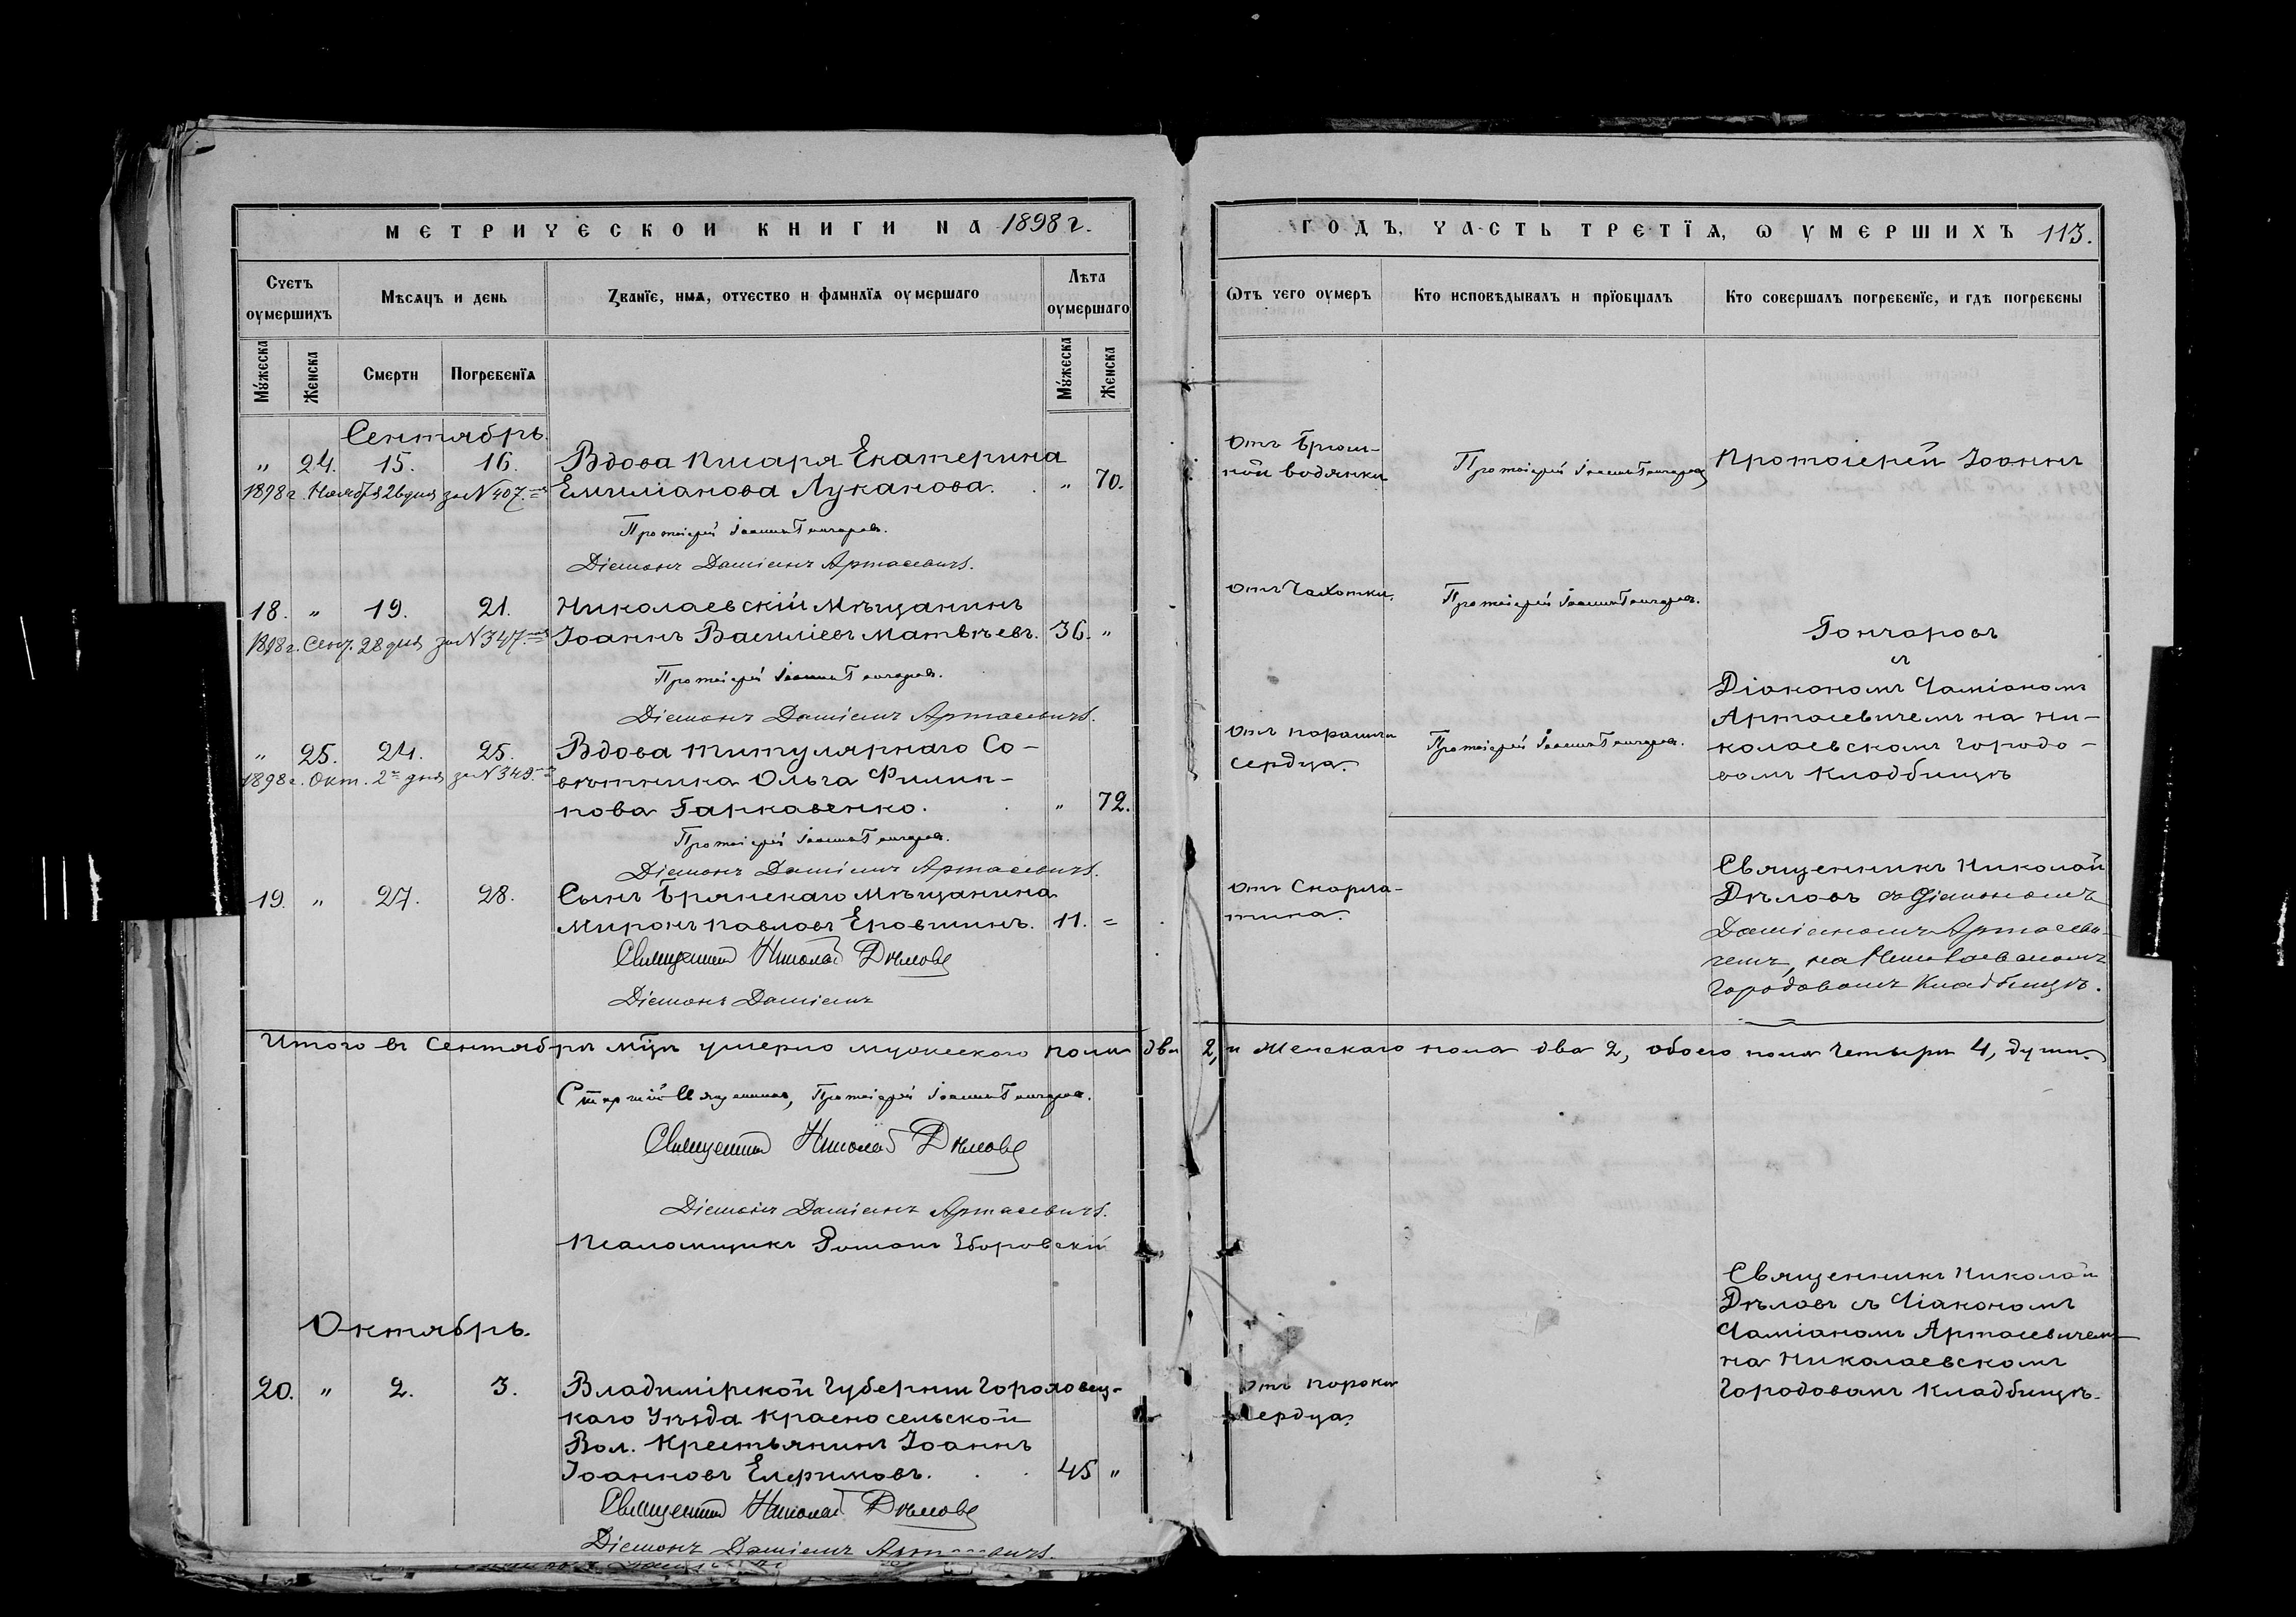 МЕТРИЧЕСКОЙ КНИГИ НА 1898 г.
Счетъ оумершихъ
Мѣсяцъ и день
Званїе, имя, отчество и фамилїя оумершаго
Лѣта оумершаго
Мужеска
Женска
Смерти
Погребенїя
Мужеска
Женска
Сентябрь.
„ 24. 15. 16. Вдова писаря Екатерина
1898 г. Ноября 26 дня за № 407. Емиліанова Луканова. „ 70.
Протоіерей Іоаннъ Гончаровъ.
Діаконъ Даміанъ Артасевичъ.
18. „ 19. 21. Николаевскій мѣщанинъ
1898 г. Сент. 28 дня за № 347. Іоаннъ Василіевъ Матвѣевъ. 36. „
Протоіерей Іоаннъ Гончаровъ.
Діаконъ Даміанъ Артасевичъ.
„ 25. 24. 25. Вдова титулярнаго Со-
1898 г. Окт. 2 дня за № 349. вѣтника Ольга Филип-
пова Гаркавенко. „ 72.
Протоіерей Іоаннъ Гончаровъ.
Діаконъ Даміанъ Артасевичъ.
19. „ 27. 28. Сынъ Брянскаго мѣщанина
Миронъ Павловъ Еровшинъ. 11. =
Священникъ Николай Дѣловъ
Діаконъ Даміанъ
Итого въ Сентябрѣ м-цѣ умерло мужескаго пола два 2, и женскаго пола два 2, обоего пола четыре 4, души.
Старшій Священникъ, Протоіерей Іоаннъ Гончаровъ.
Священникъ Николай Дѣловъ
Діаконъ Даміанъ Артасевичъ.
Псаломщикъ Романъ Зборовскій
Октябрь.
20. „ 2. 3. Владимірской губерніи Гороховец-
каго Уѣзда Красносельской
Вол. Крестьянинъ Іоаннъ
Іоанновъ Елфимовъ. 45 „
Священникъ Николай Дѣловъ
Діаконъ Даміанъ Артасевичъ.
ГОДЪ, ЧАСТЬ ТРЕТЇЯ, О УМЕРШИХЪ 113.
Отъ чего оумеръ
Кто исповѣдывалъ и прїобщалъ
Кто совершалъ погребенїе, и гдѣ погребены
отъ брюш-
ной водянки
Протоіерей Іоаннъ Гончаровъ
Протоіерей Іоаннъ
отъ Чахотки.
Протоіерей Іоаннъ Гончаровъ.
Гончаровъ
съ
Діакономъ Даміаномъ
Артасевичемъ на Ни-
колаевскомъ городо-
вомъ кладбищѣ
отъ паралича
сердца.
Протоіерей Іоаннъ Гончаровъ.
отъ Скарла-
тина.
Священникъ Николай
Дѣловъ съ Діакономъ
Даміаномъ Артасеви-
чемъ, на Николаевскомъ
городовомъ кладбищѣ.
отъ порока
сердца.
Священникъ Николай
Дѣловъ съ Діакономъ
Даміаномъ Артасевичемъ
на Николаевскомъ
городовомъ кладбищѣ.